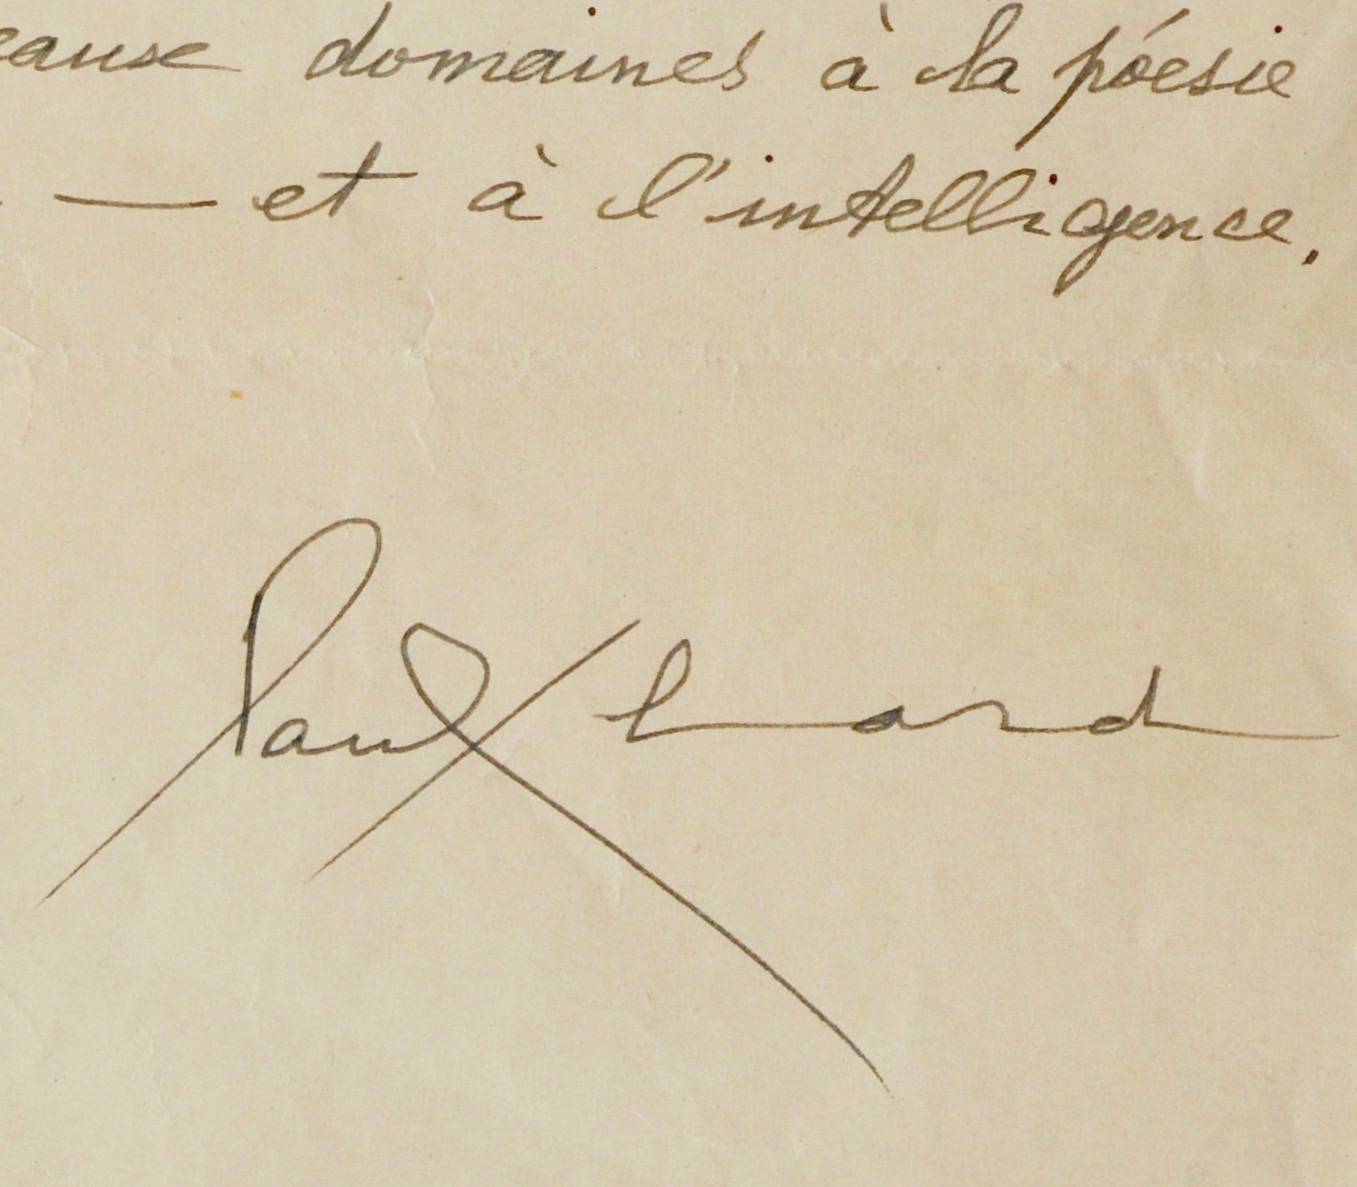 eaux domaines à la póesie
— et à l'intelligence.
Paul Eluard